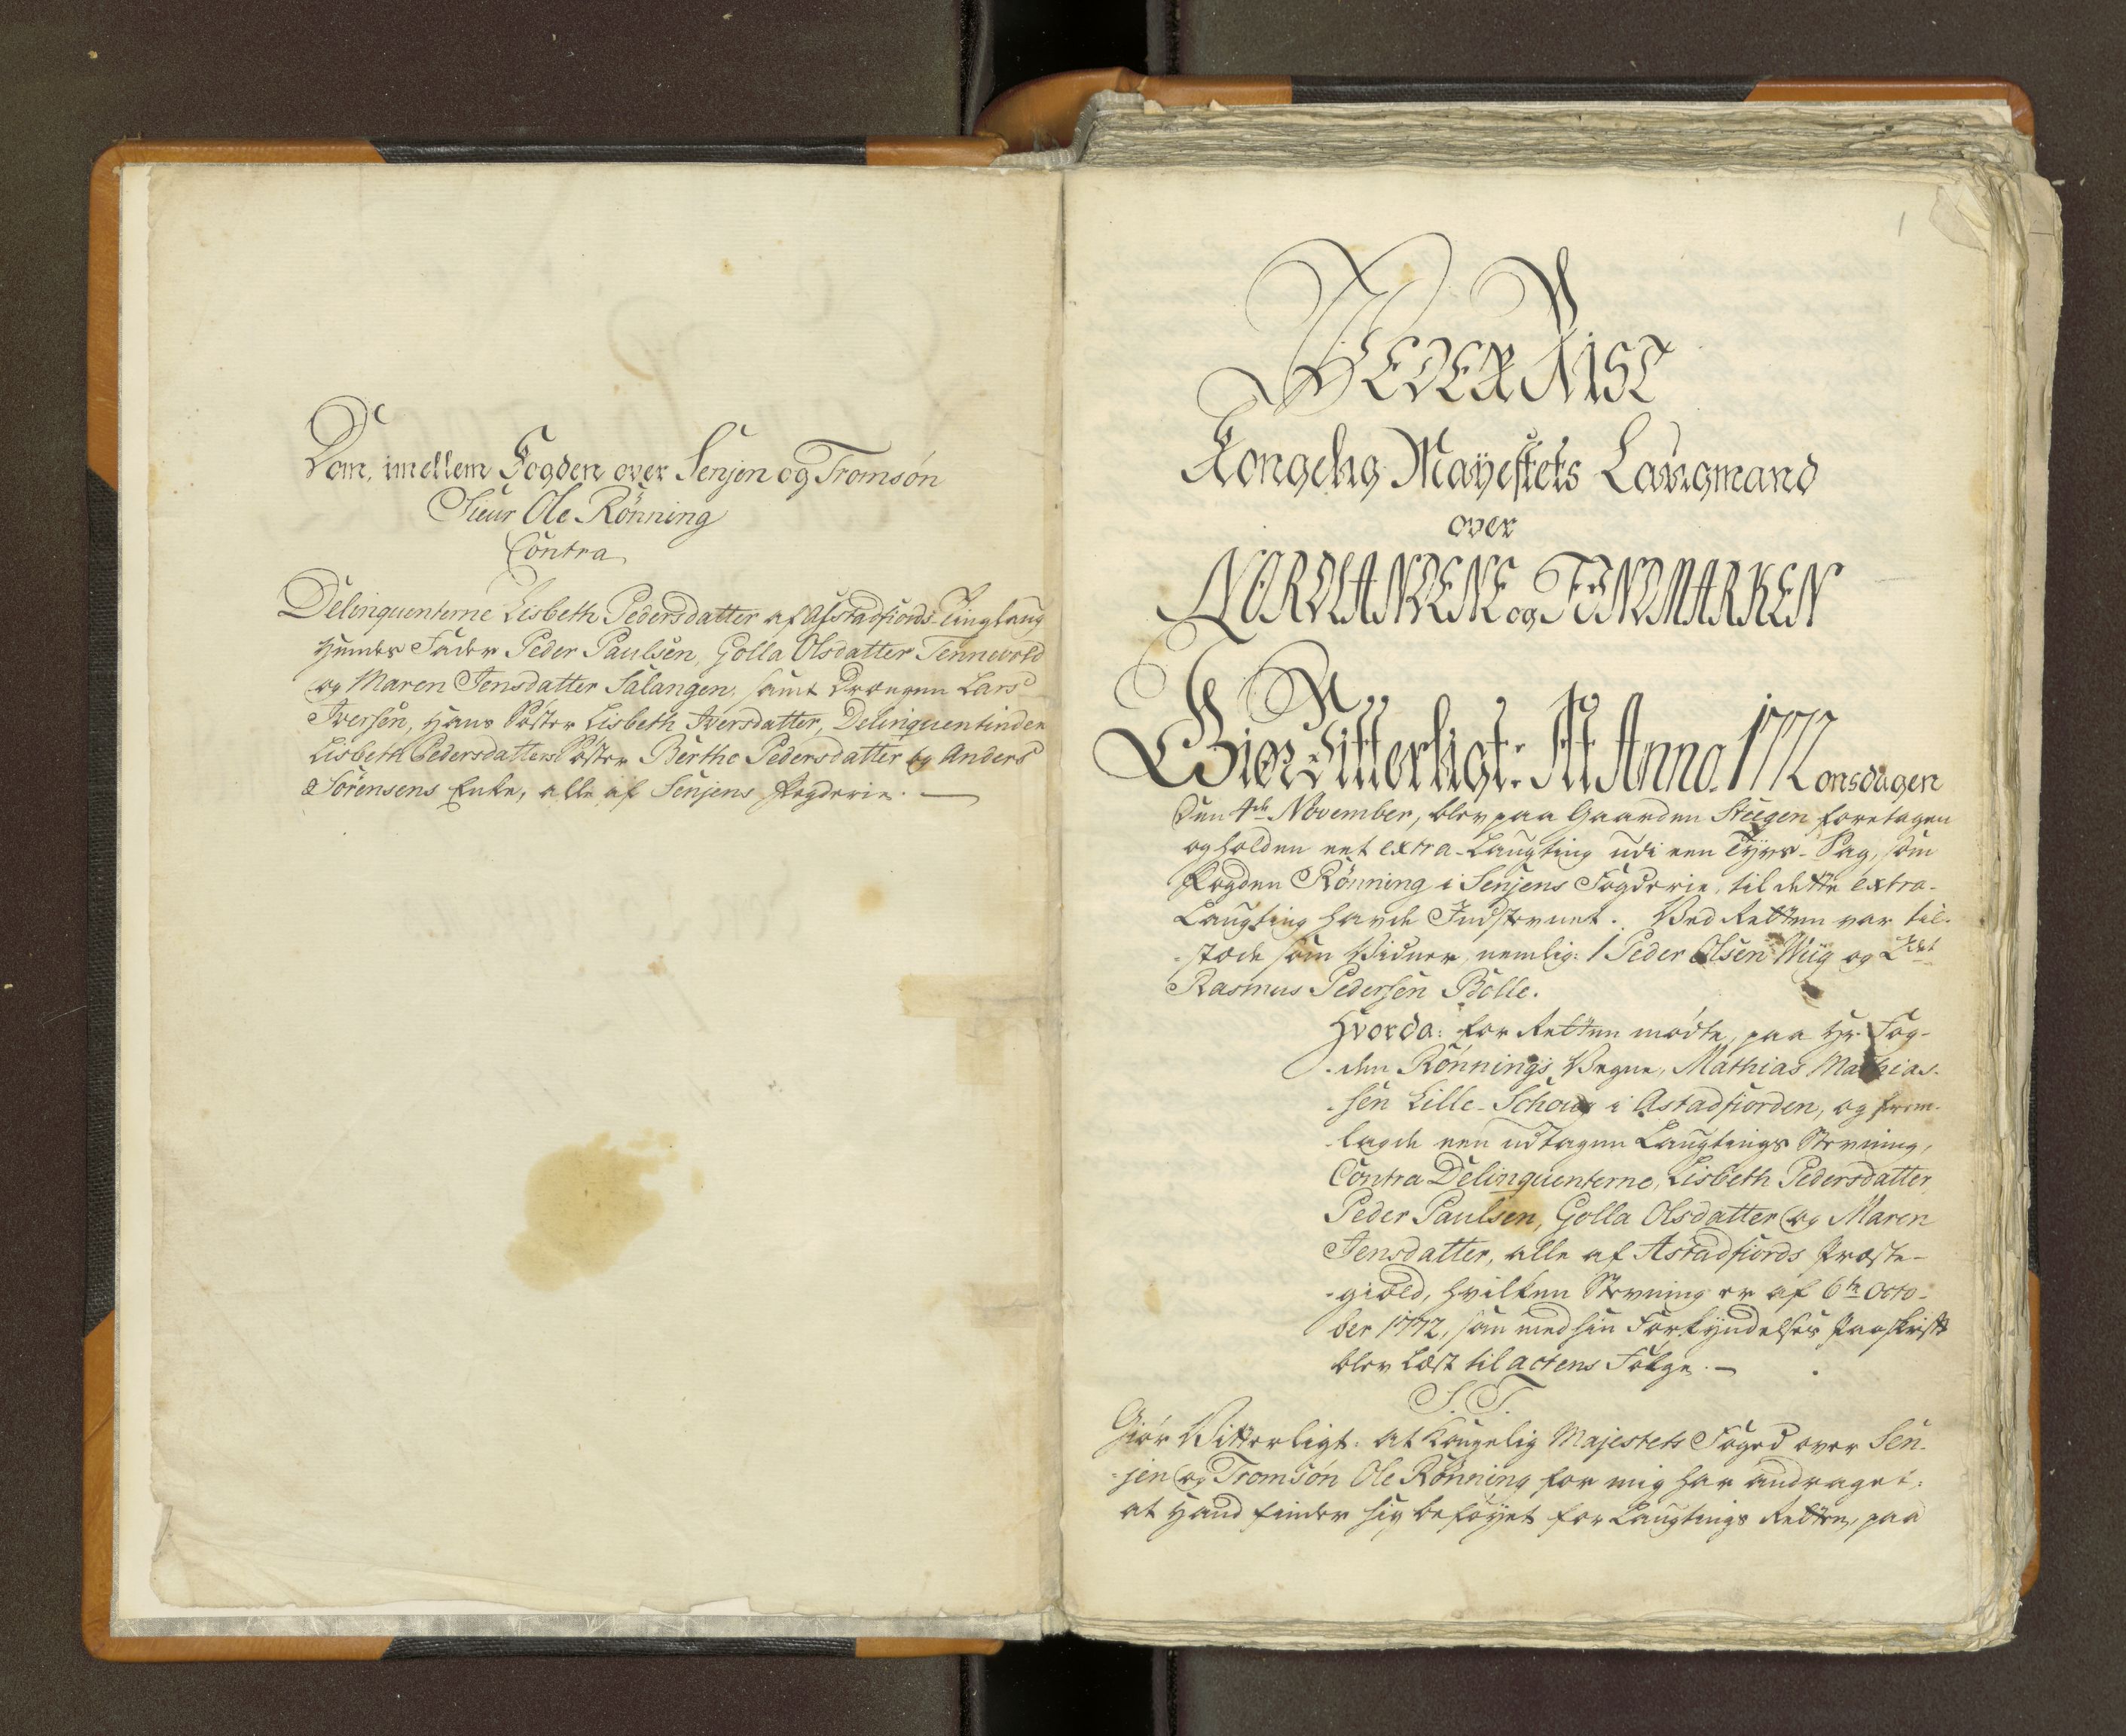 Dom, imellem Fogden over Senjen og Tromsøn
Sieur Ole Rønning
Contra
Delinquenterne Lisbeth Pedersdatter af Astadfiords Tinglaug
hendes Fader Peder Paulsen, Golla Olsdatter Tennevold
og Maren Jensdatter Salangen, samt Drængen Lars
Iversen, hans Søster Lisbeth Iversdatter, Delinquentinden
Lisbeth Pedersdatters Søster Berthe Pedersdatter og Anders
Sørensens Enke, alle af Senjens Fogderie.
1
PEDER RIST
Kongelig Mayestets Laugmand
over
NORDLANDENE og FINDMARKEN
Giør Vitterligt: At Anno. 1772 onsdagen
den 4de November, blev paa Gaarden Steegen foretagen
og holden eet extra-Laugting udi een Tyvs-Sag, som
Fogden Rønning i Senjens Fogderie, til dette extra-
Laugting havde Indstevnet. Ved Retten var til-
-stæde som Vidner, nemlig: 1 Peder Olsen Wiig og 2det
Rasmus Pedersen Bolle.
Hvorda: for Retten mødte, paa Hr. Fog-
-den Rønnings Vegne, Mathias Mathias-
-sen Lille-Schoug i Astadfiorden, og frem-
-lagde een udtagen Laugtings Stevning,
Contra Delinquenterne, Lisbeth Pedersdatter,
Peder Paulsen, Golla Olsdatter og Maren
Jensdatter, alle af Astadfiords Præste-
-giæld, hvilken Stevning er af 6te Octo-
ber 1772, som med sin Forkyndelses Paaskrift
blev læst til actens Følge.
S. T.
Giør Vitterligt: at Kongelig Majestets Foged over Sen-
-jen og Tromsøn Ole Rønning for mig har andraget:
at hand finder sig beføyet for Laugtings Retten, paa